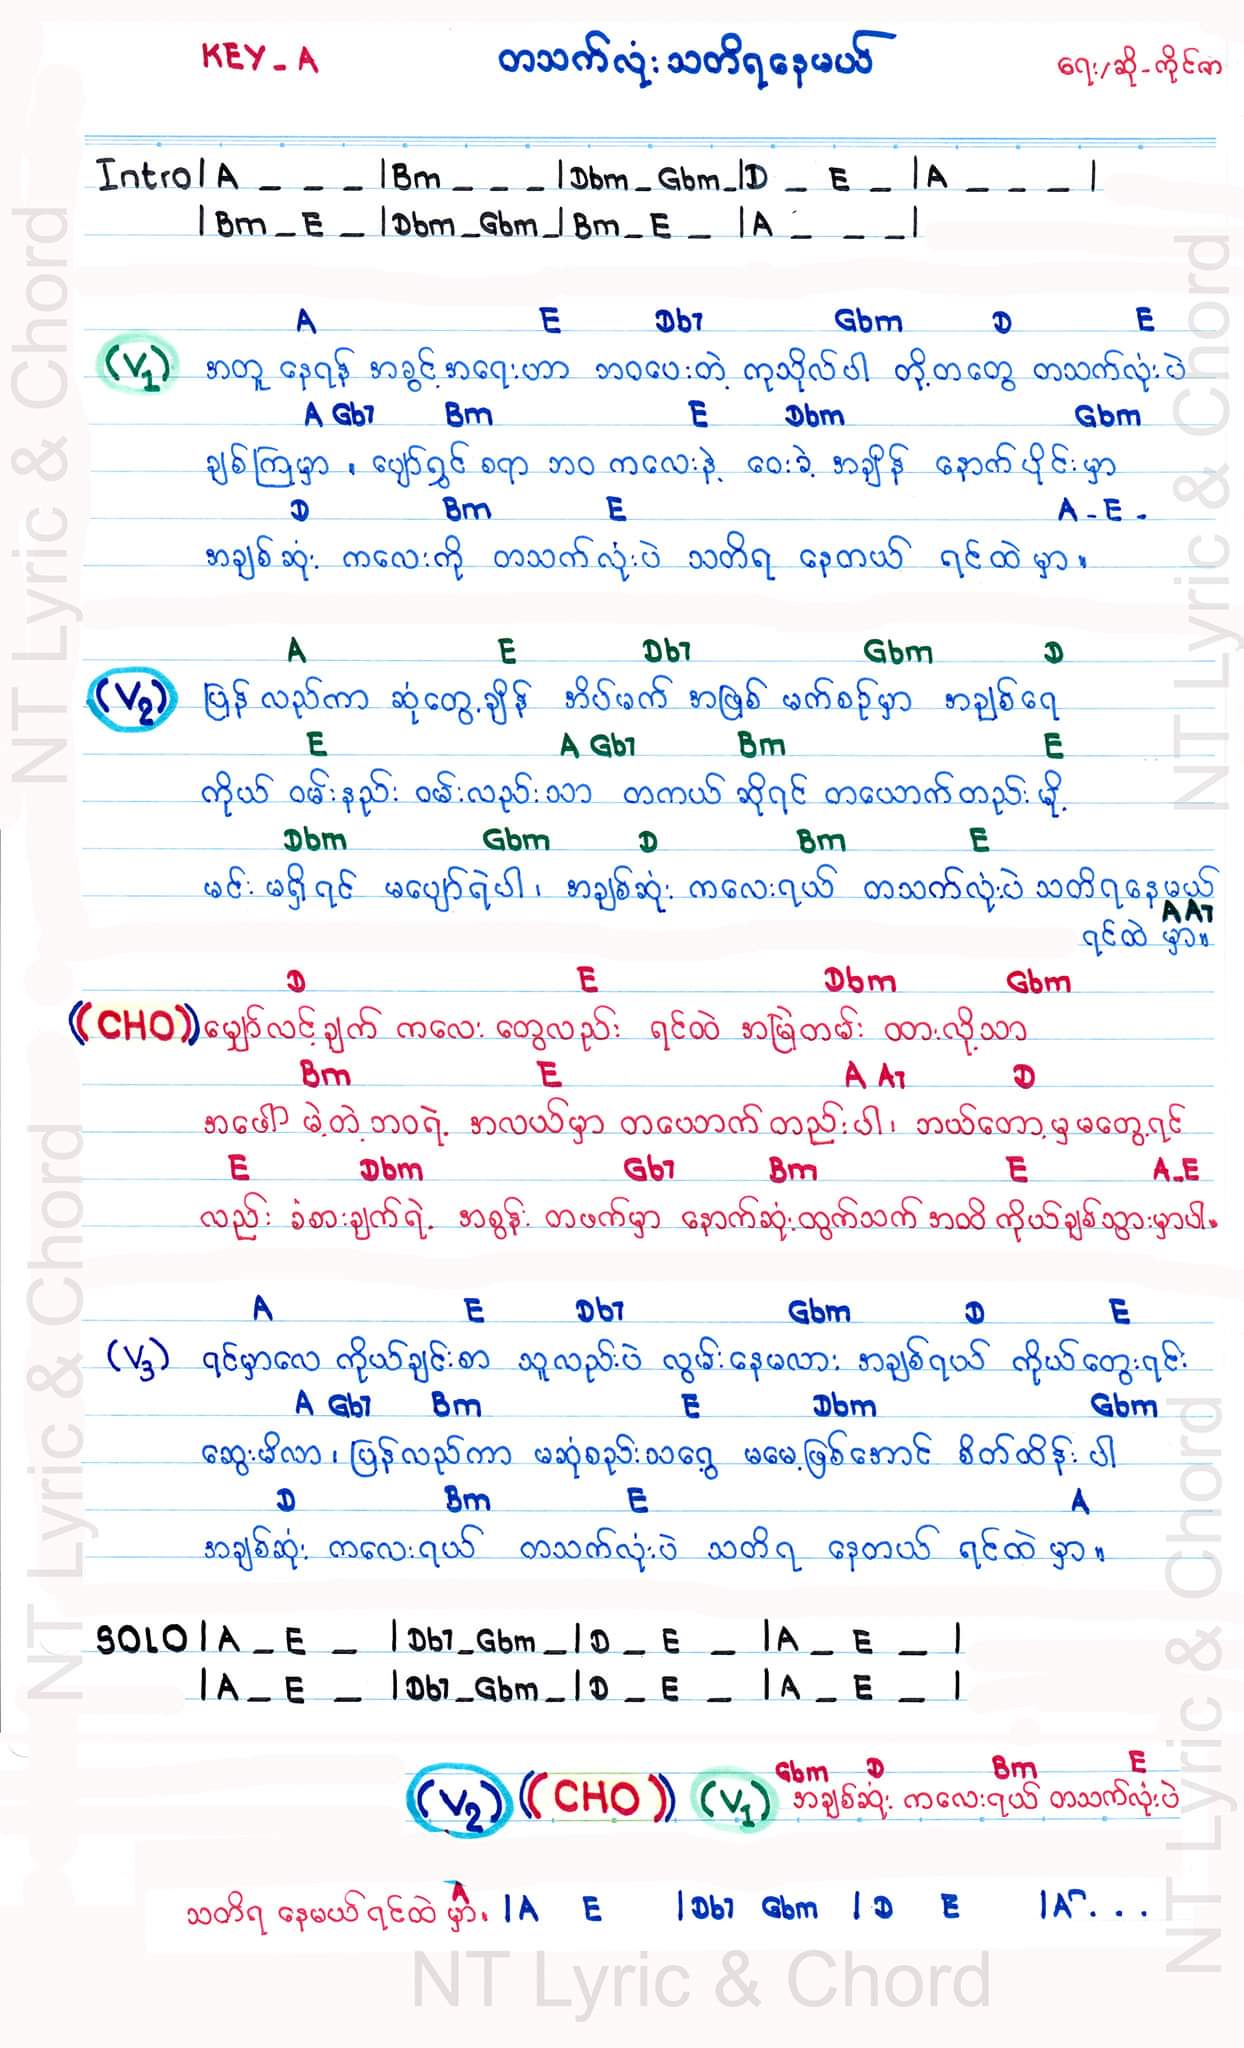 KEY_A တသက်လုံးသတိရနေမယ် ရေး/ဆို-ကိုင်ဇာ
Intro|A _ _ _|Bm _ _ _|Dbm_Gbm_|D _ E _|A _ _ _|
|Bm_E _|Dbm_Gbm_|Bm_E _|A _ _ _|
A E Db7 Gbm D E
(V1) အတူ နေရန် အခွင့်အရေးဟာ ဘဝပေးတဲ့ ကုသိုလ်ပါ တို့တတွေ တသက်လုံးပဲ
A Gb7 Bm E Dbm Gbm
ချစ်ကြမှာ ၊ ပျော်ရွှင် စရာ ဘဝ ကလေးနဲ့ ဝေးခဲ့ အချိန် နောက်ပိုင်းမှာ
D Bm E A-E-
အချစ်ဆုံး ကလေးကို တသက်လုံးပဲ သတိရ နေတယ် ရင်ထဲမှာ။
A E Db7 Gbm D
(V2) ပြန်လည်ကာ ဆုံတွေ့ချိန် အိပ်မက်အဖြစ် မက်စဉ်မှာ အချစ်ရေ
E A Gb7 Bm E
ကိုယ် ဝမ်းနည်း ဝမ်းလည်းသာ တကယ်ဆိုရင် တယောက်တည်းမို့
Dbm Gbm D Bm E
မင်းမရှိရင် မပျော်ရဲပါ၊ အချစ်ဆုံး ကလေးရယ် တသက်လုံးပဲ သတိရနေမယ်
A A7
ရင်ထဲ မှာ။
D E Dbm Gbm
((CHO)) မျှော်လင့်ချက် ကလေး တွေလည်း ရင်ထဲ အမြဲတမ်း ထားလို့သာ
Bm E A A7 D
အဖော် မဲ့တဲ့ဘဝရဲ့ အလယ်မှာ တယောက်တည်းပါ၊ ဘယ်တော့မှမတွေ့ရင်
E Dbm Gb7 Bm E A-E
လည်း ခံစားချက်ရဲ့ အစွန်း တဖက်မှာ နောက်ဆုံးထွက်သက်အထိ ကိုယ်ချစ်သွားမှာပါ။
A E Db7 Gbm D E
(V3) ရင်မှာလေ ကိုယ်ချင်းစာ သူလည်းပဲ လွမ်းနေမလား အချစ်ရယ် ကိုယ်တွေးရင်း
A Gb7 Bm E Dbm Gbm
ဆွေးမိလာ၊ ပြန်လည်ကာ မဆုံစည်းသရွေ့ မမေ့ဖြစ်အောင် စိတ်ထိန်းပါ
D Bm E A
အချစ်ဆုံး ကလေးရယ် တသက်လုံးပဲ သတိရ နေတယ် ရင်ထဲမှာ။
SOLO|A _ E _|Db7_Gbm_|D _ E _|A _ E _|
|A _ E _|Db7_Gbm_|D _ E _|A _ E _|
Gbm D Bm E
(V2) ((CHO)) (V1) အချစ်ဆုံး ကလေးရယ် တသက်လုံးပဲ
A
သတိရ နေမယ် ရင်ထဲ မှာ၊ |A E |Db7 Gbm |D E |A...
NT Lyric & Chord
NT Lyric & Chord
NT Lyric & Chord
NT Lyric & Chord
NT Lyric & Chord